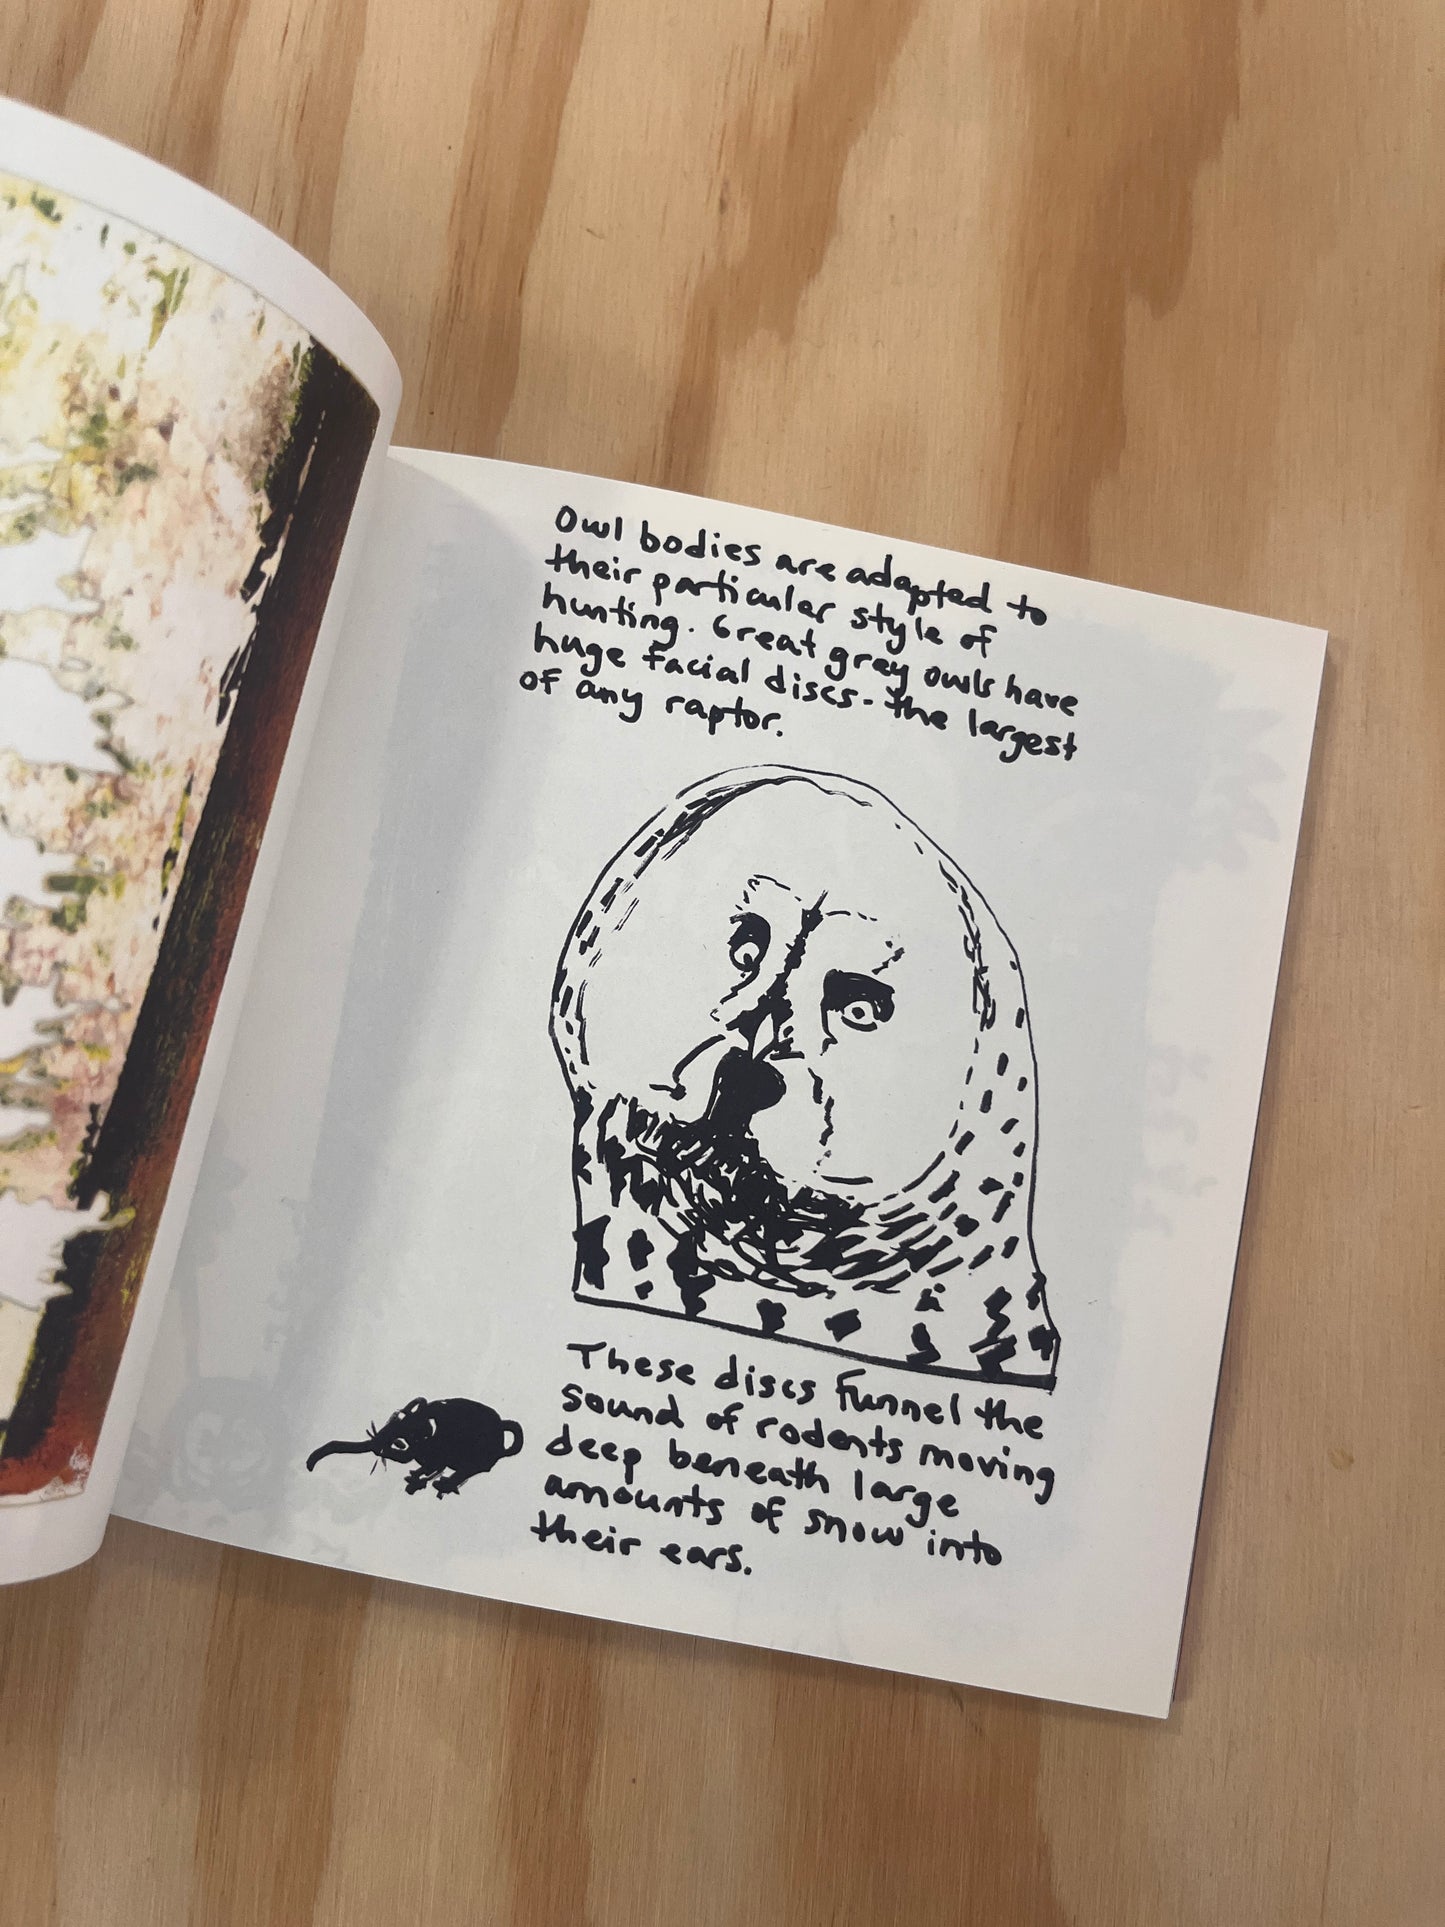 Owl bodies are adapted to
their particular style of
hunting. Great grey owls have
huge facial discs - the largest
of any raptor.
These discs funnel the
sound of rodents moving
deep beneath large
amounts of snow into
their ears.